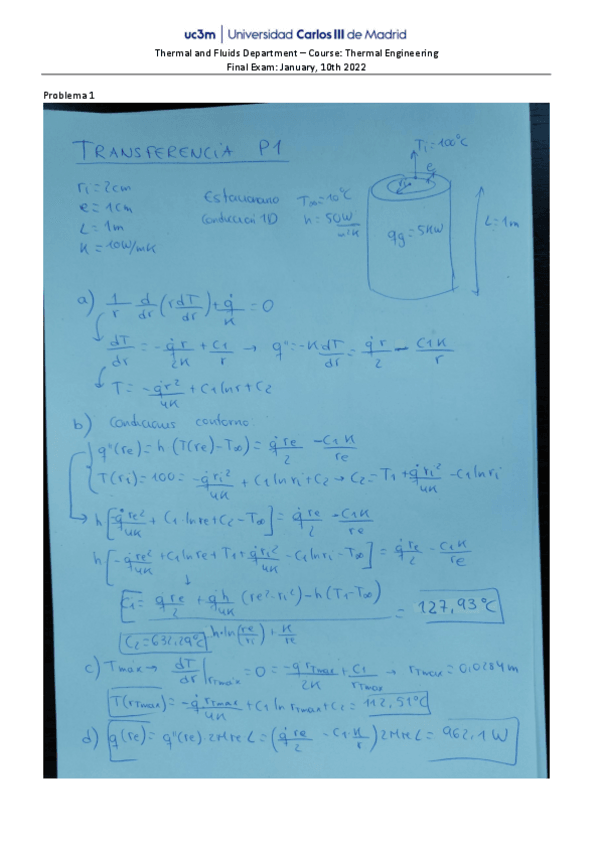 uc3m | Universidad Carlos III de Madrid
Thermal and Fluids Department – Course: Thermal Engineering
Final Exam: January, 10th 2022
Problema 1
TRANSFERENCIA P1
Ti=100°C
e
ri=2cm
e=1cm
L=1m
K=10W/mK
Estacionario
Conducción 1D
T∞=10°C
h=50W/m²K
qg=5KW
L=1m
a) 1/r d/dr (r dT/dr) + q̇/K = 0
dT/dr = -q̇r/2K + C1/r → q"=-K dT/dr = q̇r/2 - C1K/r
T = -q̇r²/4K + C1 ln r + C2
b) Condiciones contorno:
q"(re)=h(T(re)-T∞) = q̇re/2 - C1K/re
T(ri)=100= -q̇ri²/4K + C1 ln ri + C2 → C2=T1+q̇ri²/4K - C1 ln ri
h[-q̇re²/4K + C1 ln re + C2 - T∞] = q̇re/2 - C1K/re
h[-q̇re²/4K + C1 ln re + T1 + q̇ri²/4K - C1 ln ri - T∞] = q̇re/2 - C1K/re
C1 = (q̇re/2 + q̇h/4K (re²-ri²) - h(T1-T∞)) / (h·ln(re/ri) + K/re) = 127,93°C
C2=632,29°C
c) Tmáx → dT/dr|rTmáx = 0 = -q̇rTmax/2K + C1/rTmax → rTmax=0,0284m
T(rTmax) = -q̇rTmax/4K + C1 ln rTmax + C2 = 112,51°C
d) q(re) = q"(re) 2πre L = (q̇re/2 - C1K/r) 2πre L = 962,1 W